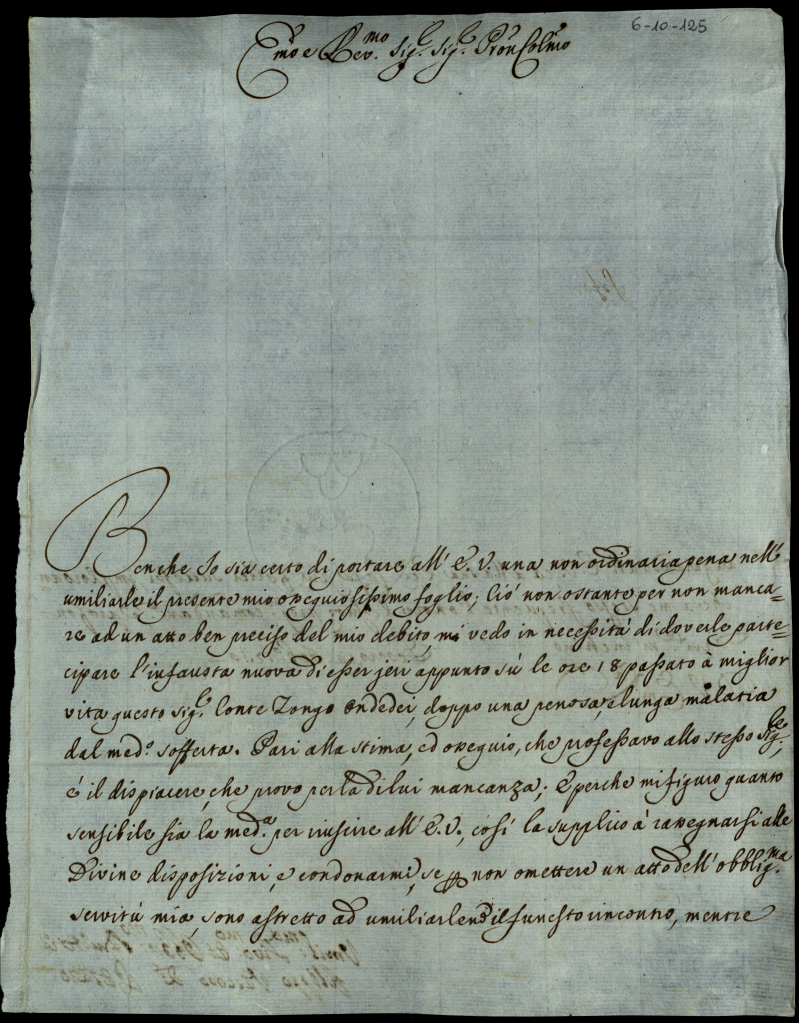 6-10-125
Emo e Revmo. Sigr. Sigr. Pron Colmo
Benche Io sia certo di portare all' E. V. una non ordinaria pena nell'
umiliarle il presente mio ossequiosissimo foglio; Ciò non ostante per non manca-
re ad un atto ben preciso del mio debito, mi vedo in necessità di doverle parte-
cipare l'infausta nuova di esser jeri appunto sù le ore 18 passato à miglior
vita questo Sigr. Conte Zongo Ondedei, doppo una penosa, e lunga malatia
dal medo. sofferta. Pari alla stima, ed ossequio, che professavo allo stesso Sigre,
é il dispiacere, che provo per la di lui mancanza; E perche mi figuro quanto
sensibile sia la meda. per riuscire all' E. V., così la supplico à rassegnarsi alle
Divine disposizioni, e condonarmi, se per non omettere un atto dell' obbligma.
servitù mia, sono astretto ad umiliarlene il funesto rincontro, mentre